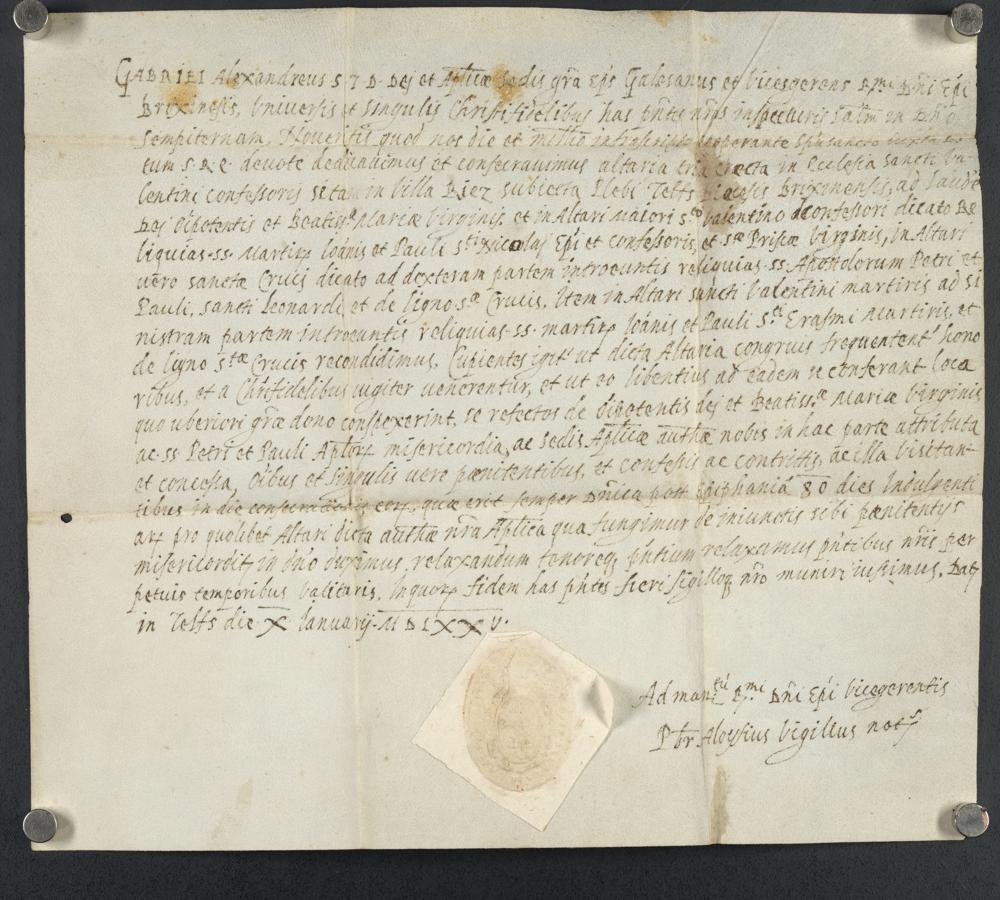 GABRIEL Alexandreus S T D Dej et Aplicæ Sedis gra Eps Galesanus et vicesgerens R.mi Dñi Epi
Brixinesis, Universis et singulis Christifidelibus has pñtes nr̃as inspecturis salm̃ in Dño
sempiternam. Noveritis quod nos die et millio infrascripto cooperante Spũsancto iuxta ri-
tum S. R. E. devote dedicavimus et consecravimus altaria tria erecta in Ecclesia Sancti Va-
lentini confessoris sctam in Villa Riez subiecta Plebi Telfs Diocesis Brixinensis, ad laudẽ
Dej õipotentis et Beatiss.æ Mariæ Virginis, et in Altari maiori s.to Valentino confessori dicato Re
liquias. ss. Martirꝝ Ioãnis et Pauli s.ti Nicolaj Epi et confessoris, et s.æ Priscæ Virginis, in Altari
vero sanctæ Cruci dicato ad dexteram partem introeuntis reliquias. ss. Apostolorum Petri et
Pauli, sancti Leonardi et de ligno s.æ Crucis. Item in Altari sancti Valentini martiris ad si
nistram partem introeuntis reliquias. ss. martirꝝ Ioãnis et Pauli s.ti Erasmi Martiris, et
de ligno s.tæ Crucis recondidimus, Cupientes igit.r ut dicta Altaria congruis frequentent.r hono
ribus, et a Chrifidelibus iugiter venerentur, et ut eo libentius ad eadem se conferant loca
quo uberiori grãe dono conspexerint, se refectos de õipotentis dej et Beatiss.æ Mariæ Virginis
ac ss Petri et Pauli Aptorꝝ misericordia, ac sedis Aplicæ authæ nobis in hac parte attributa
et concessa, õibus et singulis vere pænitentibus, et confessis ac contritis, ac illa visitan-
tibus in die consecrationis eorꝝ, quæ erit semper Dñica post Epiphaniã 80 dies Indulgenti
arꝝ pro quolibet Altari dicta authæ nr̃a Aplica qua fungimur de iniunctis sibi pænitentijs
misericordit.r in dño duximus, relaxandum tenoreq; pñtium relaxamus pñtibus nr̃is per
petuis temporibus valituris. Inquorꝝ fidem has pñtes fieri sigilloq; nr̃o muniri iussimus. Dat.
in Telfs die X Ianuarij. M D L X X V.
Ad man.tũ R.mi Dñi Epi Vicegerentis
Pbr Aloysius Vigilius not.s